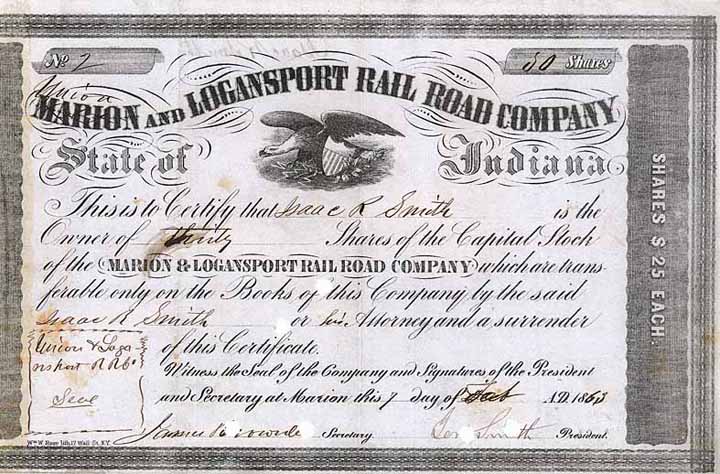 No 2 30 Shares
Union
MARION AND LOGANSPORT RAIL ROAD COMPANY
State of Indiana
This is to Certify that Isaac R Smith is the
Owner of thirty Shares of the Capital Stock
of the MARION & LOGANSPORT RAIL ROAD COMPANY which are trans-
ferable only on the Books of this Company by the said
Isaac R Smith or his Attorney and a surrender
of this Certificate.
Union & Loga
nsport R R Co
Seal
Witness the Seal of the Company and Signatures of the President
and Secretary at Marion this 7 day of A.D. 186
Secretary. Smith President.
Wm W. Rose lith. 17 Wall St. N.Y.
SHARES $ 25 EACH.